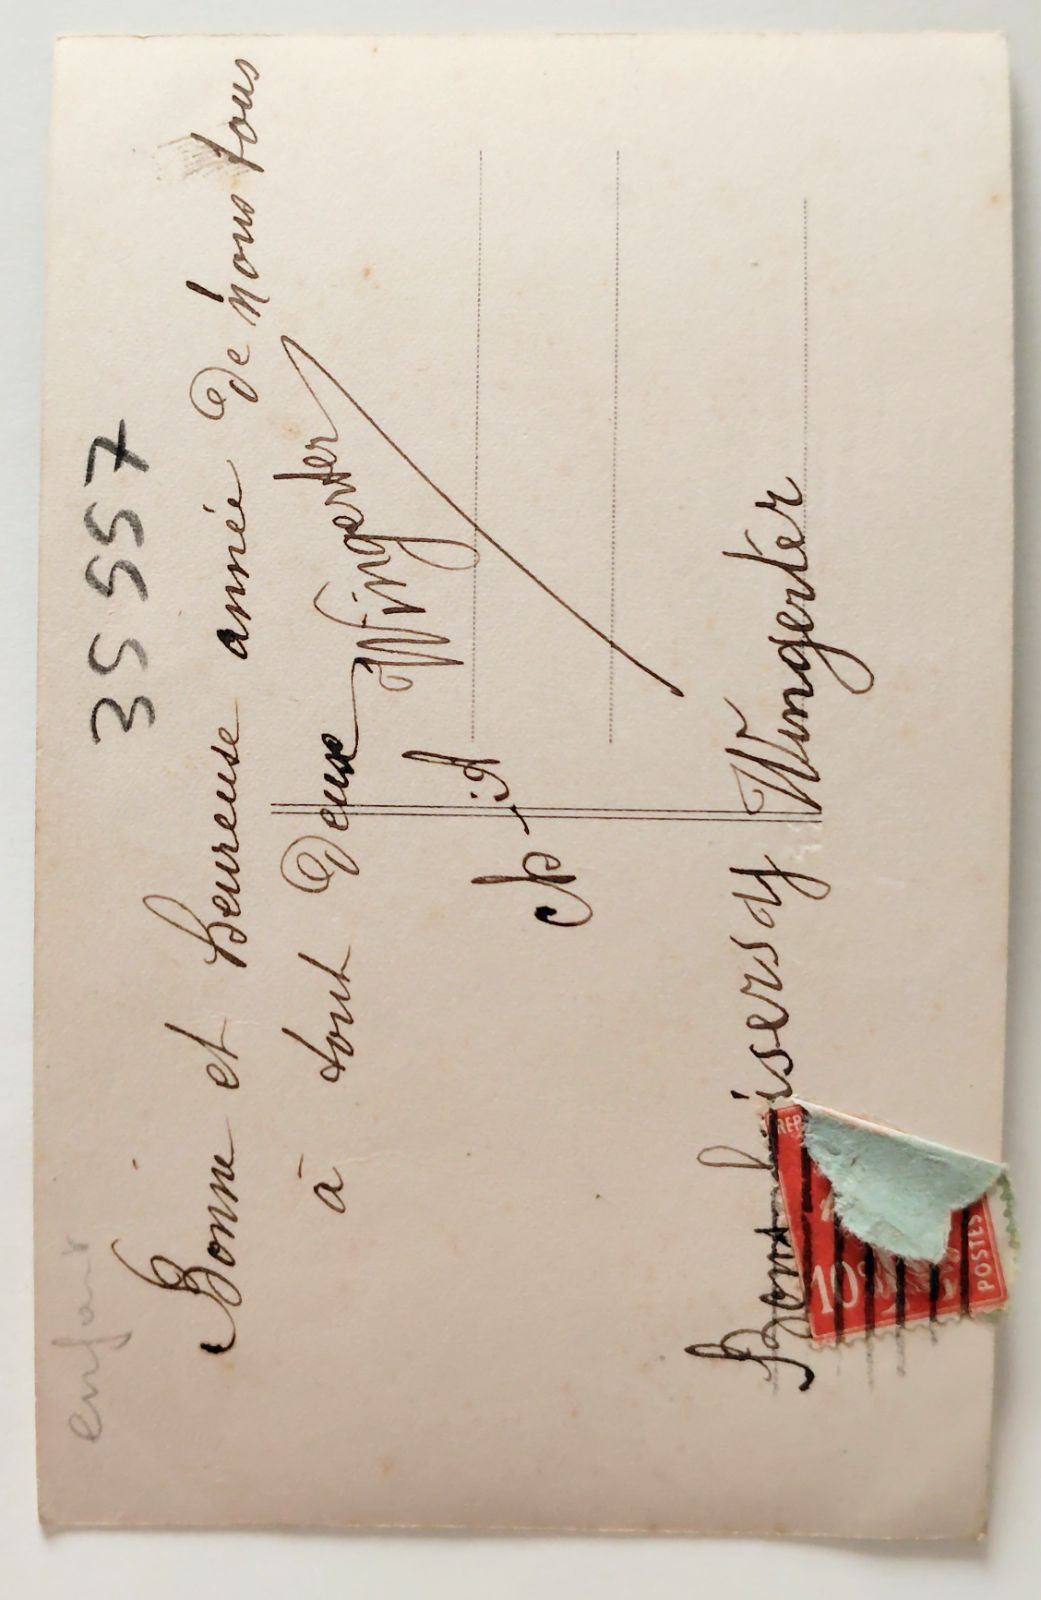 enfant
35557
Bonne et heureuse année De nous tous
à tout Deux
Wingerter
Bons baisers Wingerter
REP
10
POSTES